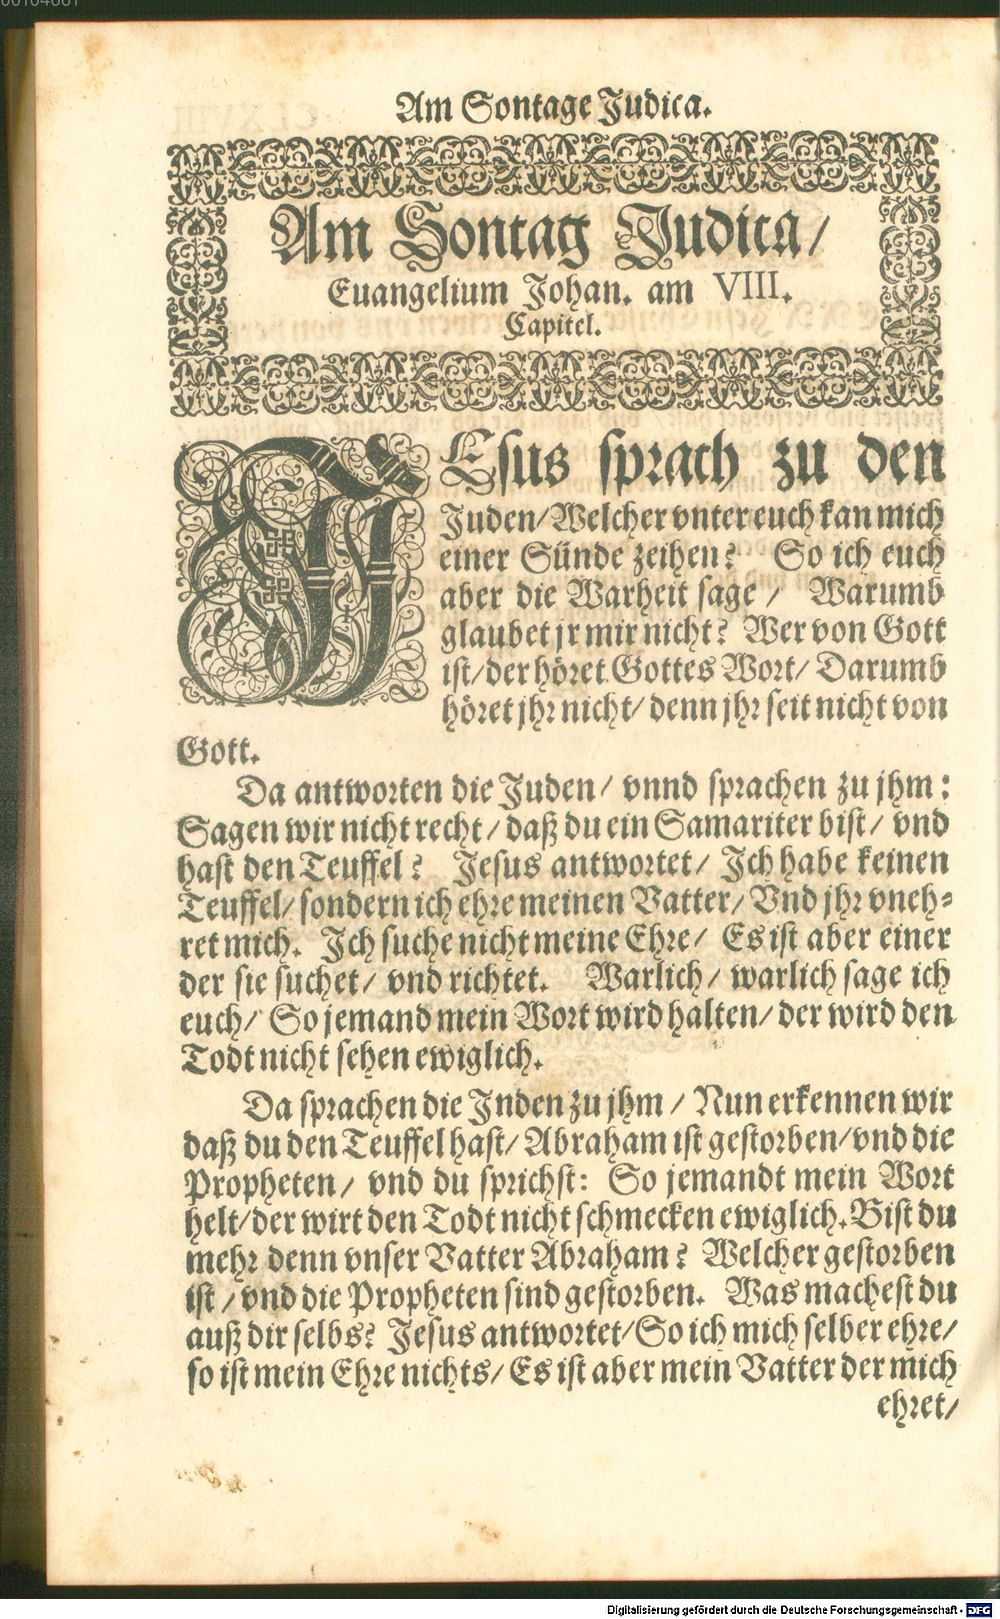 00104661
Am Sontage Judica.
Am Sontag Judica/
Euangelium Johan. am VIII.
Capitel.
JEsus sprach zu den
Juden/Welcher vnter euch kan mich
einer Sünde zeihen? So ich euch
aber die Warheit sage/ Warumb
glaubet jr mir nicht? Wer von Gott
ist/der höret Gottes Wort/ Darumb
höret jhr nicht/ denn jhr seit nicht von
Gott.
Da antworten die Juden/ vnnd sprachen zu jhm:
Sagen wir nicht recht/ daß du ein Samariter bist/ vnd
hast den Teuffel? Jesus antwortet/ Ich habe keinen
Teuffel/ sondern ich ehre meinen Vatter/ Vnd jhr vneh-
ret mich. Ich suche nicht meine Ehre/ Es ist aber einer
der sie suchet/ vnd richtet. Warlich/ warlich sage ich
euch/ So jemand mein Wort wird halten/ der wird den
Todt nicht sehen ewiglich.
Da sprachen die Jnden zu jhm/ Nun erkennen wir
daß du den Teuffel hast/ Abraham ist gestorben/ vnd die
Propheten/ vnd du sprichst: So jemandt mein Wort
helt/ der wirt den Todt nicht schmecken ewiglich. Bist du
mehr denn vnser Vatter Abraham? Welcher gestorben
ist/ vnd die Propheten sind gestorben. Was machest du
auß dir selbs? Jesus antwortet/ So ich mich selber ehre/
so ist mein Ehre nichts/ Es ist aber mein Vatter der mich
ehret/
Digitalisierung gefördert durch die Deutsche Forschungsgemeinschaft - DFG